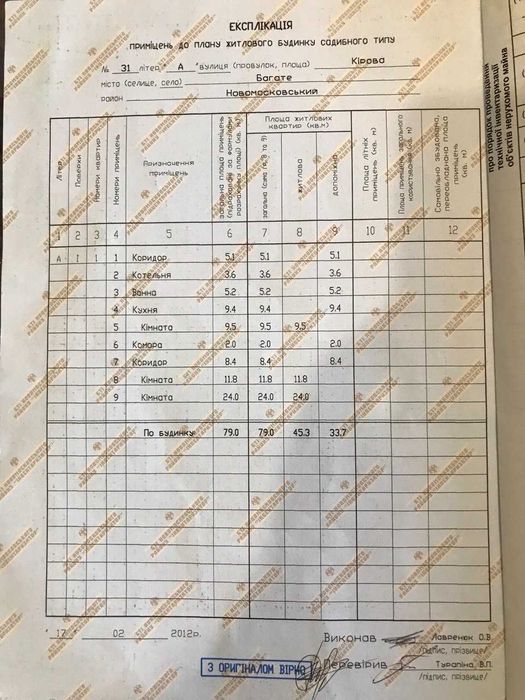 ЕКСПЛІКАЦІЯ
приміщень до плану житлового будинку садибного типу
№ 31 літер " А " вулиця (провулок, площа) Кірова
місто (селище, село) Багате
район Новомосковський
Літер
Поверхи
Номери квартир
Номери приміщень
Призначення приміщень
загальна площа приміщень (підрахована за формулами розрахунку площі) (кв. м)
Площа житлових квартир (кв.м)
загальна (сума гр. 8 та 9)
житлова
допоміжна
Площа літніх приміщень (кв. м)
Площа приміщень загального користування (кв. м)
Самовільно збудована, переобладнана площа приміщень (кв. м)
1 2 3 4 5 6 7 8 9 10 11 12
А 1 1 1 Коридор 5.1 5.1 5.1
2 Котельня 3.6 3.6 3.6
3 Ванна 5.2 5.2 5.2
4 Кухня 9.4 9.4 9.4
5 Кімната 9.5 9.5 9.5
6 Комора 2.0 2.0 2.0
7 Коридор 8.4 8.4 8.4
8 Кімната 11.8 11.8 11.8
9 Кімната 24.0 24.0 24.0
По будинку: 79.0 79.0 45.3 33.7
" 17 " 02 2012г.
Виконав Лавренюк О.В.
/підпис, прізвище/
Перевірив Турапіна В.П.
/підпис, прізвище/
З ОРИГІНАЛОМ ВІРНО
про порядок проведення
технічної інвентаризації
об'єктів нерухомого майна